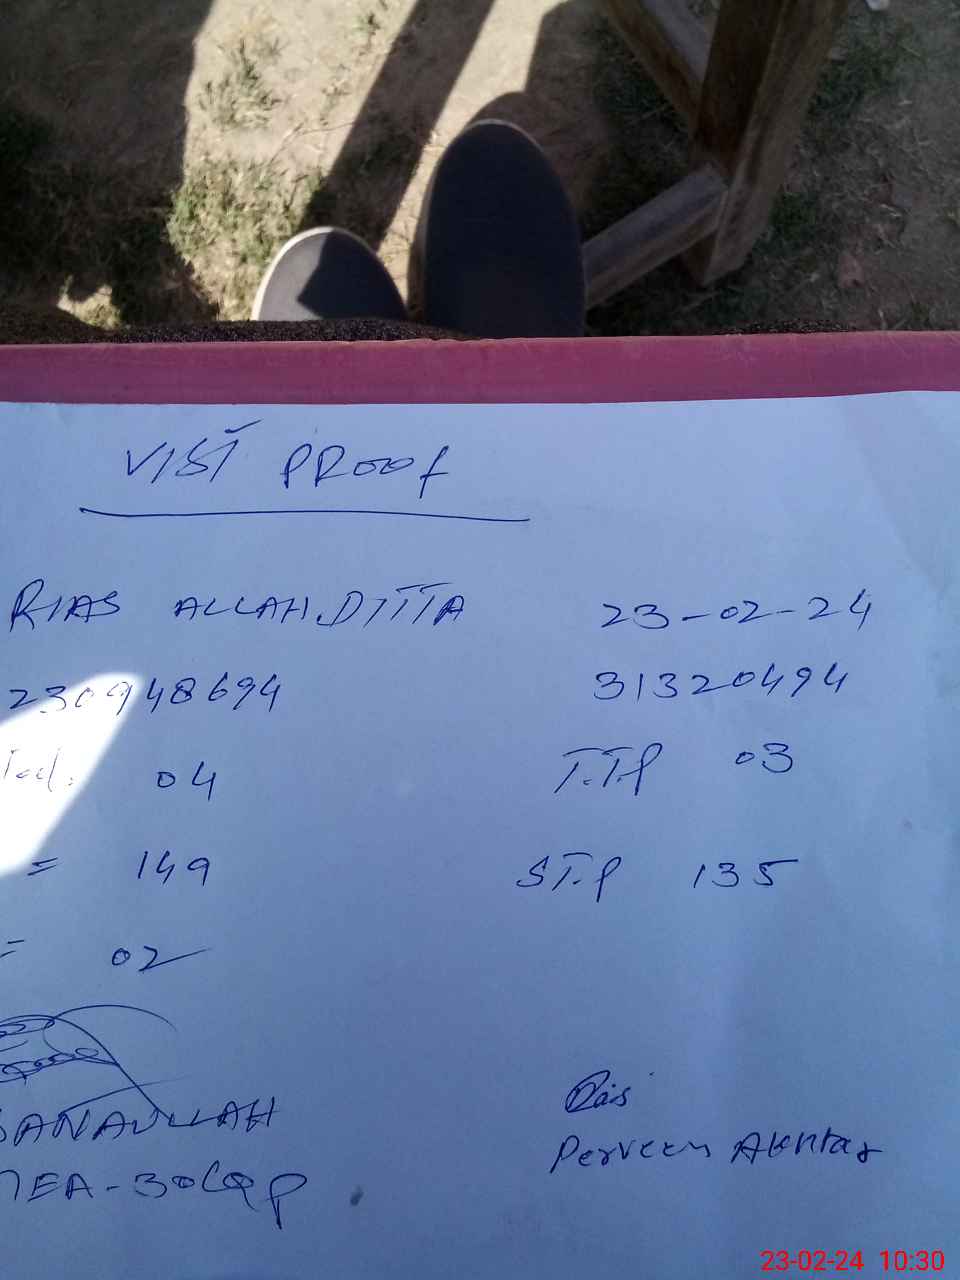 VISIT PROOF
RIAS ALLAH.DITTA 23-02-24
230948694 31320494
04 T.T.P 03
= 149 S.T.P 135
= 02
SANAULLAH
MEA-30
Perveen Akhtar
23-02-24 10:30